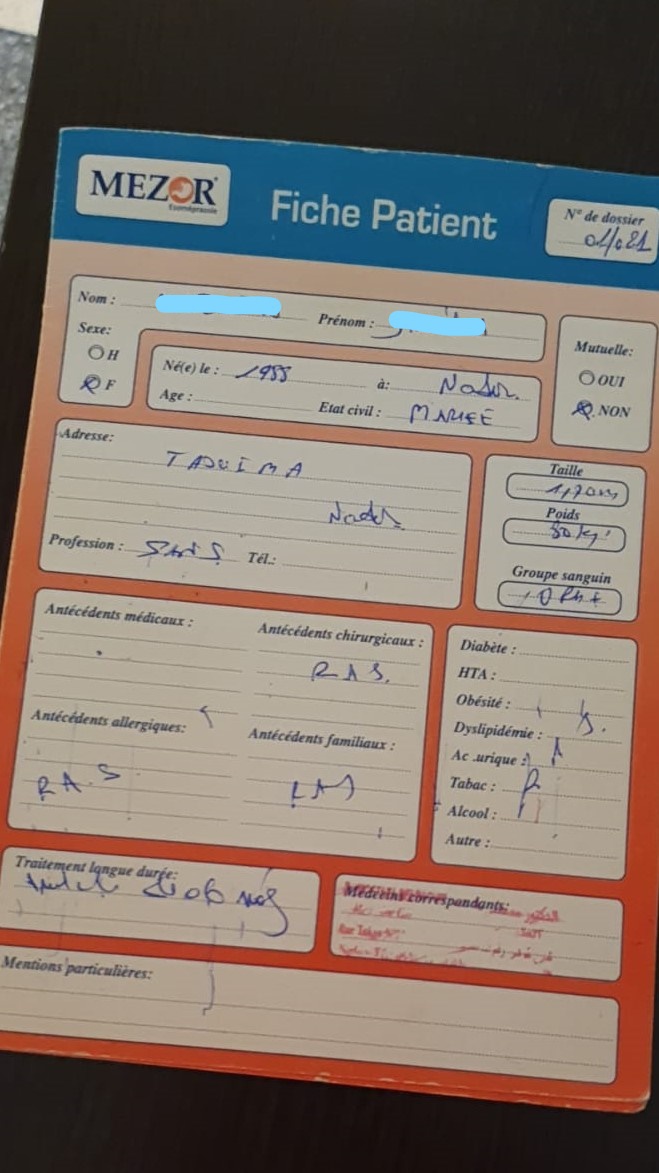 MEZOR
Esoméprazole
Fiche Patient
N° de dossier
Nom :
Prénom :
Sexe:
H
F
Né(e) le : 1955 à: Nador.
Age : Etat civil : MARIEE
Mutuelle:
OUI
NON
Adresse:
TAOUIMA
Nador
Profession : SANS Tél.:
Taille
Poids
80 kg
Groupe sanguin
Antécédents médicaux :
Antécédents chirurgicaux :
RAS.
Antécédents allergiques:
RAS
Antécédents familiaux :
RAS
Diabète :
HTA :
Obésité :
Dyslipidémie :
Ac .urique :
Tabac :
Alcool :
Autre :
Traitement longue durée:
Médecins correspondants:
Mentions particulières: